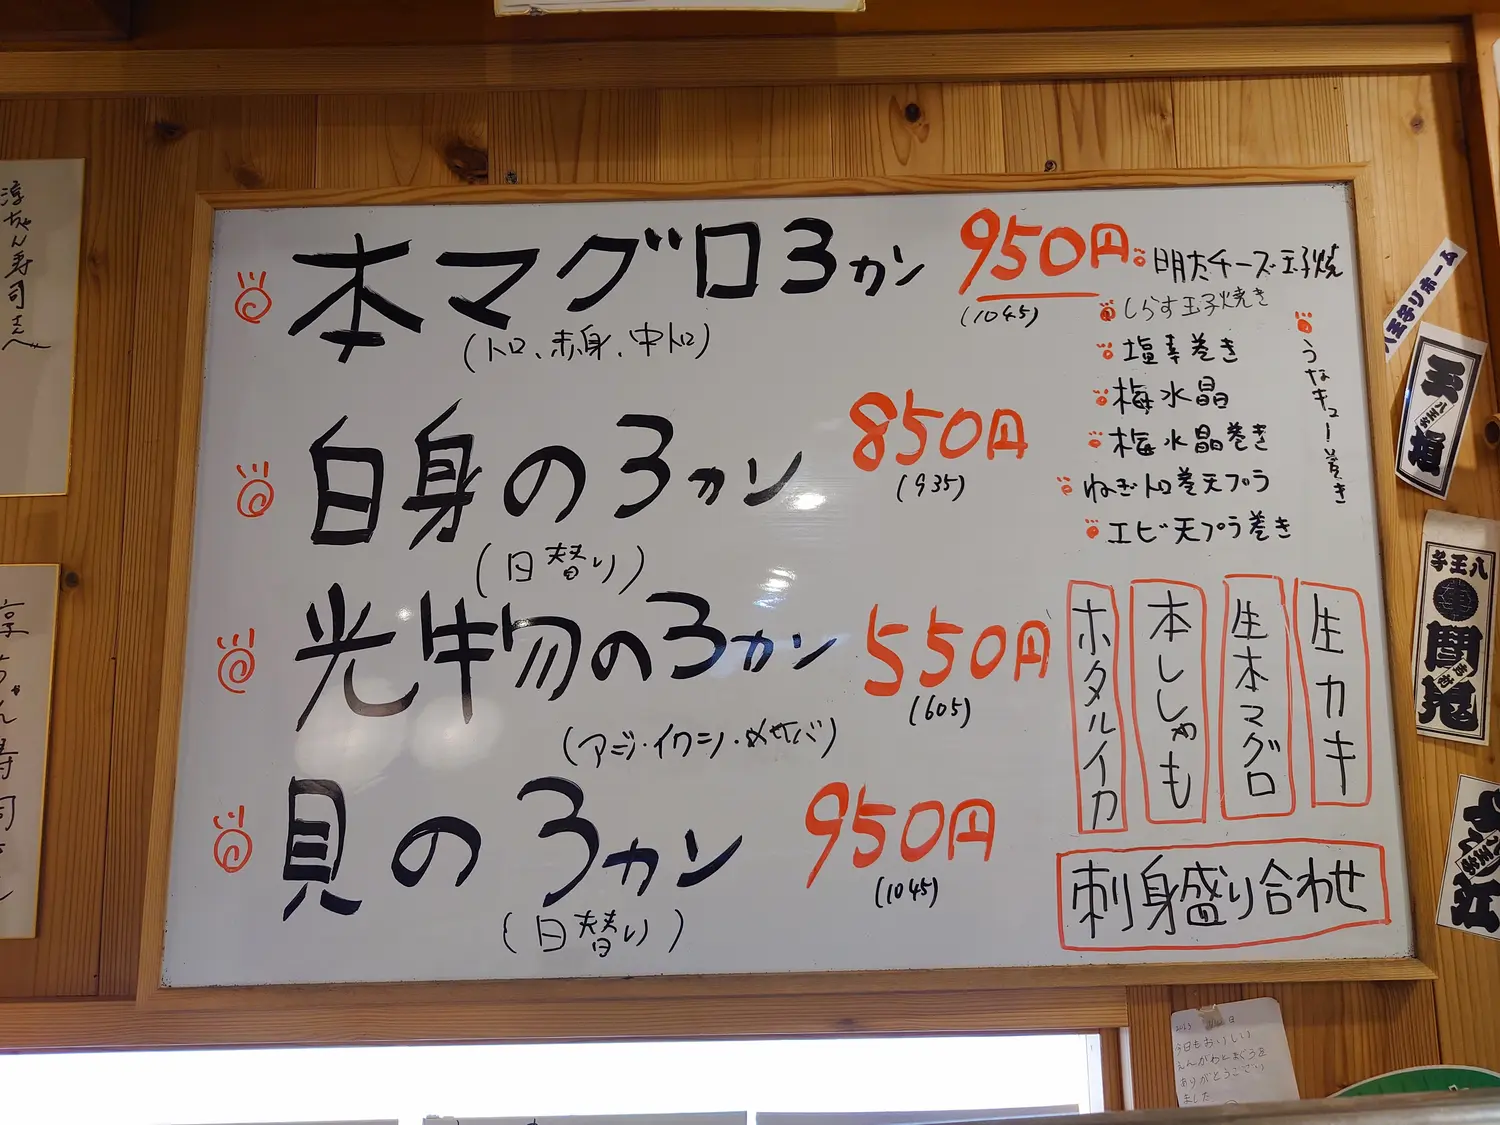 本マグロ3カン 950円
(1045)
(トロ、赤身、中トロ)
白身の3カン 850円
(935)
(日替り)
光物の3カン 550円
(605)
(アジ・イワシ・〆サバ)
貝の3カン 950円
(1045)
(日替り)
明太チーズ玉子焼
しらす玉子焼き
塩辛巻き
梅水晶
梅水晶巻き
ねぎトロ巻天プラ
エビ天プラ巻き
うなキュー巻き
生カキ
生本マグロ
本ししゃも
ホタルイカ
刺身盛り合わせ
淳ちゃん寿司さんへ
八王子リホーム
八王子
今日もおいしい
えんがわとまぐろを
ありがとうござい
ました